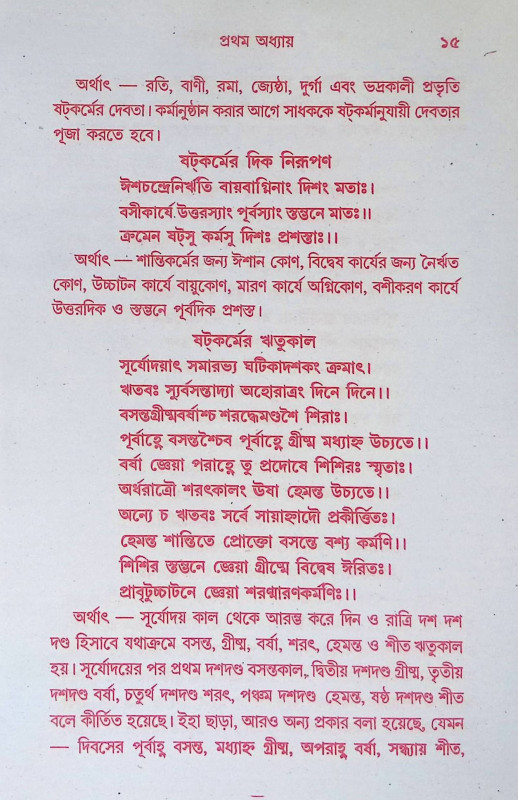 প্রথম অধ্যায় ১৫
অর্থাৎ — রতি, বাণী, রমা, জ্যেষ্ঠা, দুর্গা এবং ভদ্রকালী প্রভৃতি
ষট্‌কর্মের দেবতা। কর্মানুষ্ঠান করার আগে সাধককে ষট্‌কর্মানুযায়ী দেবতার
পূজা করতে হবে।
ষট্‌কর্মের দিক নিরূপণ
ঈশচন্দ্রেনির্ঋতি বায়বাগ্নিনাং দিশং মতাঃ।
বসীকার্যে উত্তরস্যাং পূর্বস্যাং স্তম্ভনে মাতঃ।।
ক্রমেন ষট্‌সু কর্মসু দিশঃ প্রশস্তাঃ।।
অর্থাৎ — শান্তিকর্মের জন্য ঈশান কোণ, বিদ্বেষ কার্যের জন্য নৈর্ঋত
কোণ, উচ্চাটন কার্যে বায়ুকোণ, মারণ কার্যে অগ্নিকোণ, বশীকরণ কার্যে
উত্তরদিক ও স্তম্ভনে পূর্বদিক প্রশস্ত।
ষট্‌কর্মের ঋতুকাল
সূর্যোদয়াৎ সমারভ্য ঘটিকাদশকং ক্রমাৎ।
ঋতবঃ স্যুর্বসন্তাদ্যা অহোরাত্রং দিনে দিনে।।
বসন্তগ্রীষ্মবর্ষাশ্চ শরদ্ধেমণ্ডশৈ শিরাঃ।
পূর্বাহ্নে বসন্তশ্চৈব পূর্বাহ্নে গ্রীষ্ম মধ্যাহ্ন উচ্যতে।।
বর্ষা জ্ঞেয়া পরাহ্নে তু প্রদোষে শিশিরঃ স্মৃতাঃ।
অর্ধরাত্রৌ শরৎকালং ঊষা হেমন্ত উচ্যতে।।
অন্যে চ ঋতবঃ সর্বে সায়াহ্নাদৌ প্রকীর্ত্তিতঃ।
হেমন্ত শান্তিতে প্রোক্তো বসন্তে বশ্য কর্মণি।।
শিশির স্তম্ভনে জ্ঞেয়া গ্রীষ্মে বিদ্বেষ ঈরিতঃ।
প্রাবৃটুচ্চাটনে জ্ঞেয়া শরন্মারণকর্মণিঃ।।
অর্থাৎ — সূর্যোদয় কাল থেকে আরম্ভ করে দিন ও রাত্রি দশ দশ
দণ্ড হিসাবে যথাক্রমে বসন্ত, গ্রীষ্ম, বর্ষা, শরৎ, হেমন্ত ও শীত ঋতুকাল
হয়। সূর্যোদয়ের পর প্রথম দশদণ্ড বসন্তকাল, দ্বিতীয় দশদণ্ড গ্রীষ্ম, তৃতীয়
দশদণ্ড বর্ষা, চতুর্থ দশদণ্ড শরৎ, পঞ্চম দশদণ্ড হেমন্ত, ষষ্ঠ দশদণ্ড শীত
বলে কীর্তিত হয়েছে। ইহা ছাড়া, আরও অন্য প্রকার বলা হয়েছে, যেমন
— দিবসের পূর্বাহ্ণ বসন্ত, মধ্যাহ্ন গ্রীষ্ম, অপরাহ্ণ বর্ষা, সন্ধ্যায় শীত,